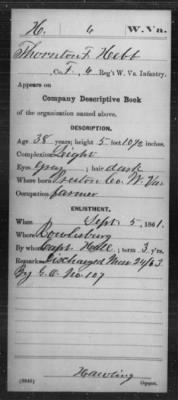 H. 6 W. Va.
Thornton F. Hebb
Co. F, 4 Reg't W. Va. Infantry.
Appears on
Company Descriptive Book
of the organization named above.
DESCRIPTION.
Age 38 years; height 5 feet 10½ inches.
Complexion Light
Eyes Gray; hair dark
Where born Preston Co. W. Va
Occupation farmer
ENLISTMENT.
When Sept. 5, 1861.
Where Rowlesburg
By whom Capt. Hall; term 3 y'rs.
Remarks Discharged Mar 24/63
By G.O. No. 107
Hawling
Copyist.